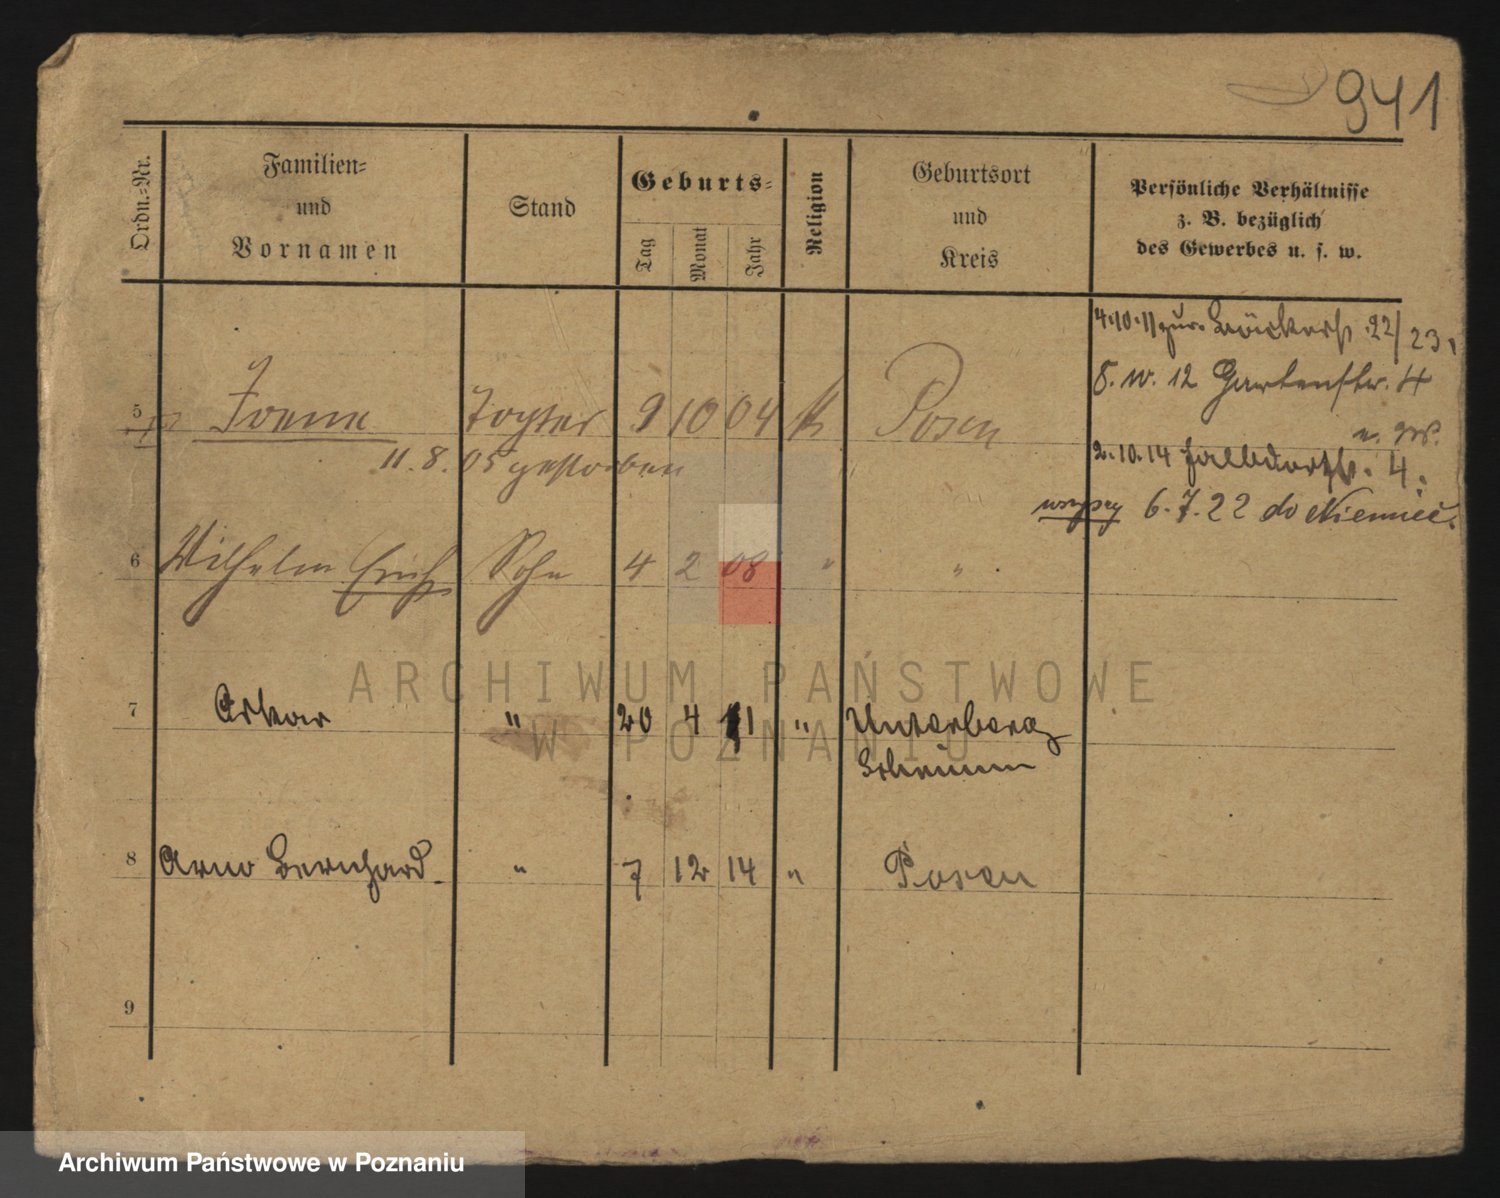 941
Ordn.=Nr.
Familien=
und
Vornamen
Stand
Geburts=
Tag
Monat
Jahr
Religion
Geburtsort
und
Kreis
Persönliche Verhältnisse
z. B. bezüglich
des Gewerbes u. s. w.
4.10.11 zur. Bäckerst. 22/23,
8. IV. 12 Gartenstr. 4
5 Tochter 9 10 04 K Posen
11.8.05 gestorben
2.10.14 4.
6.7.22 do Niemiec.
6 Wilhelm Erich Sohn 4 2 08 " "
ARCHIWUM PAŃSTWOWE
W POZNANIU
7 Oskar " 20 4 11 " Unterberg
Schrimm
8 Arno Bernhard " 7 12 14 " Posen
9
Archiwum Państwowe w Poznaniu